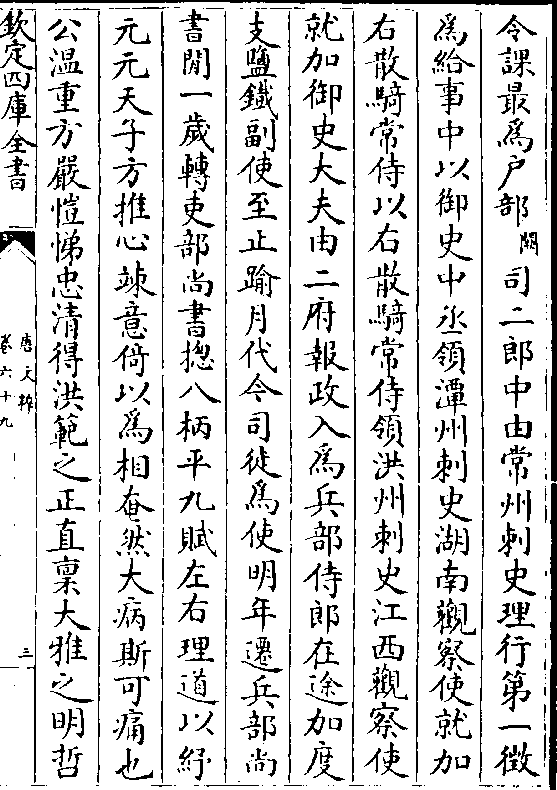 令課最爲户部闕司二郎中由常州刺史理行第一徴
爲給事中以御史中丞領潭州刺史湖南觀察使就加
右散騎常侍以右散騎常侍領洪州刺史江西觀察使
就加御史大夫由二府報政入爲兵部侍郎在途加度
支鹽鐵副使至止踰月代今司徒爲使明年遷兵部尚
書閒一歲轉吏部尚書揔八柄平九賦左右理道以紓
元元天子方推心竦意倚以爲相奄然大病斯可痛也
公溫重方嚴愷悌忠清得洪範之正直稟大雅之明哲
欽定四庫全書
唐文粹
卷六十九
三